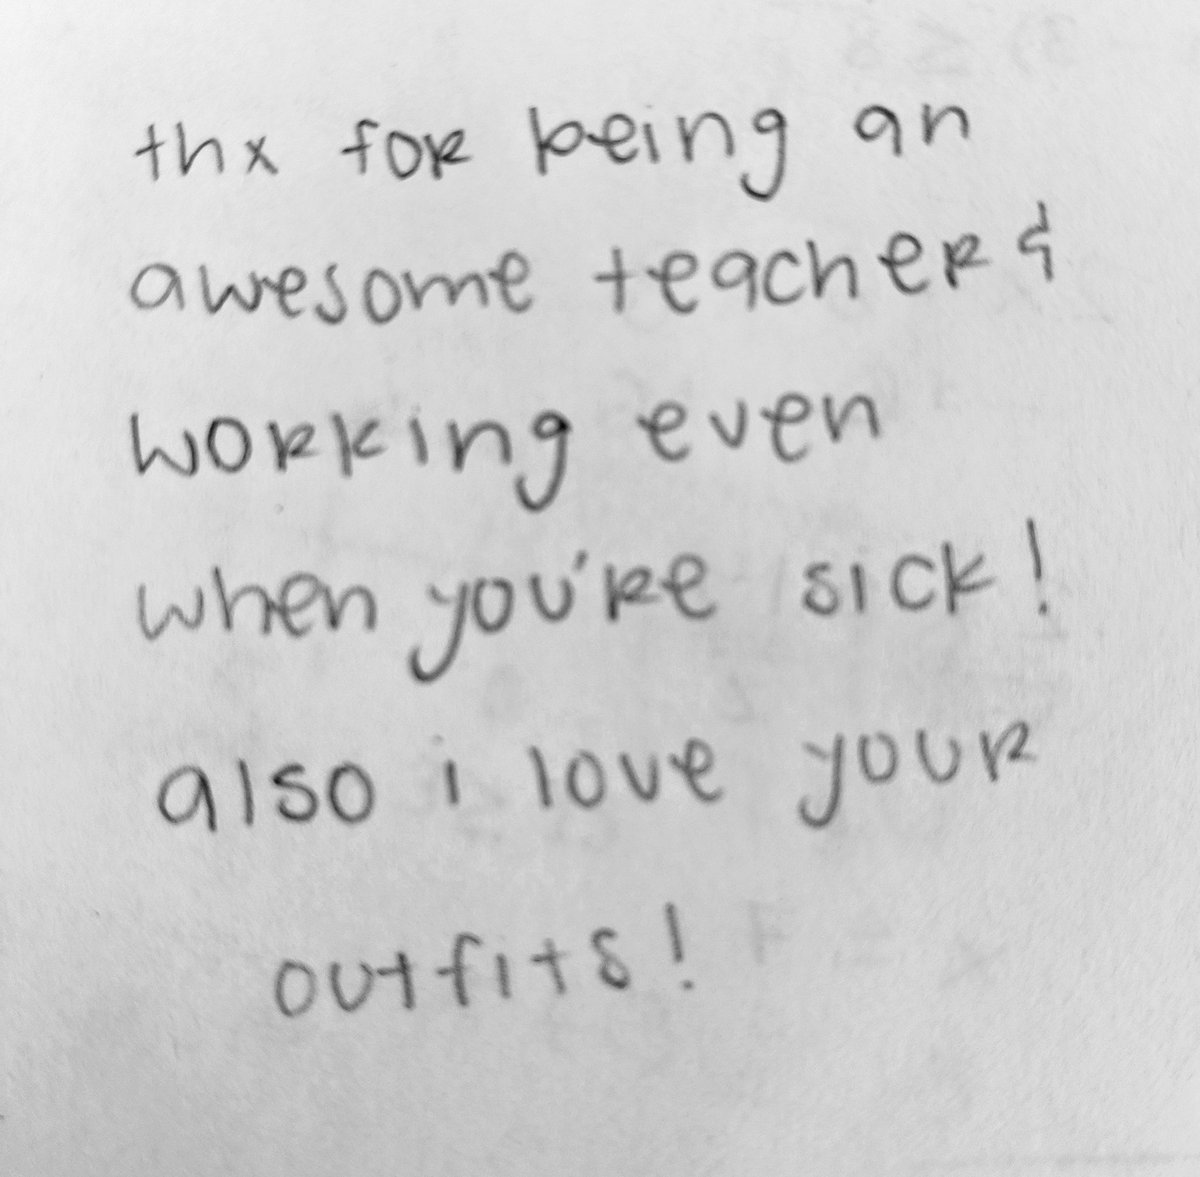 thx for being an
awesome teacher &
working even
when you're sick!
also i love your
outfits!